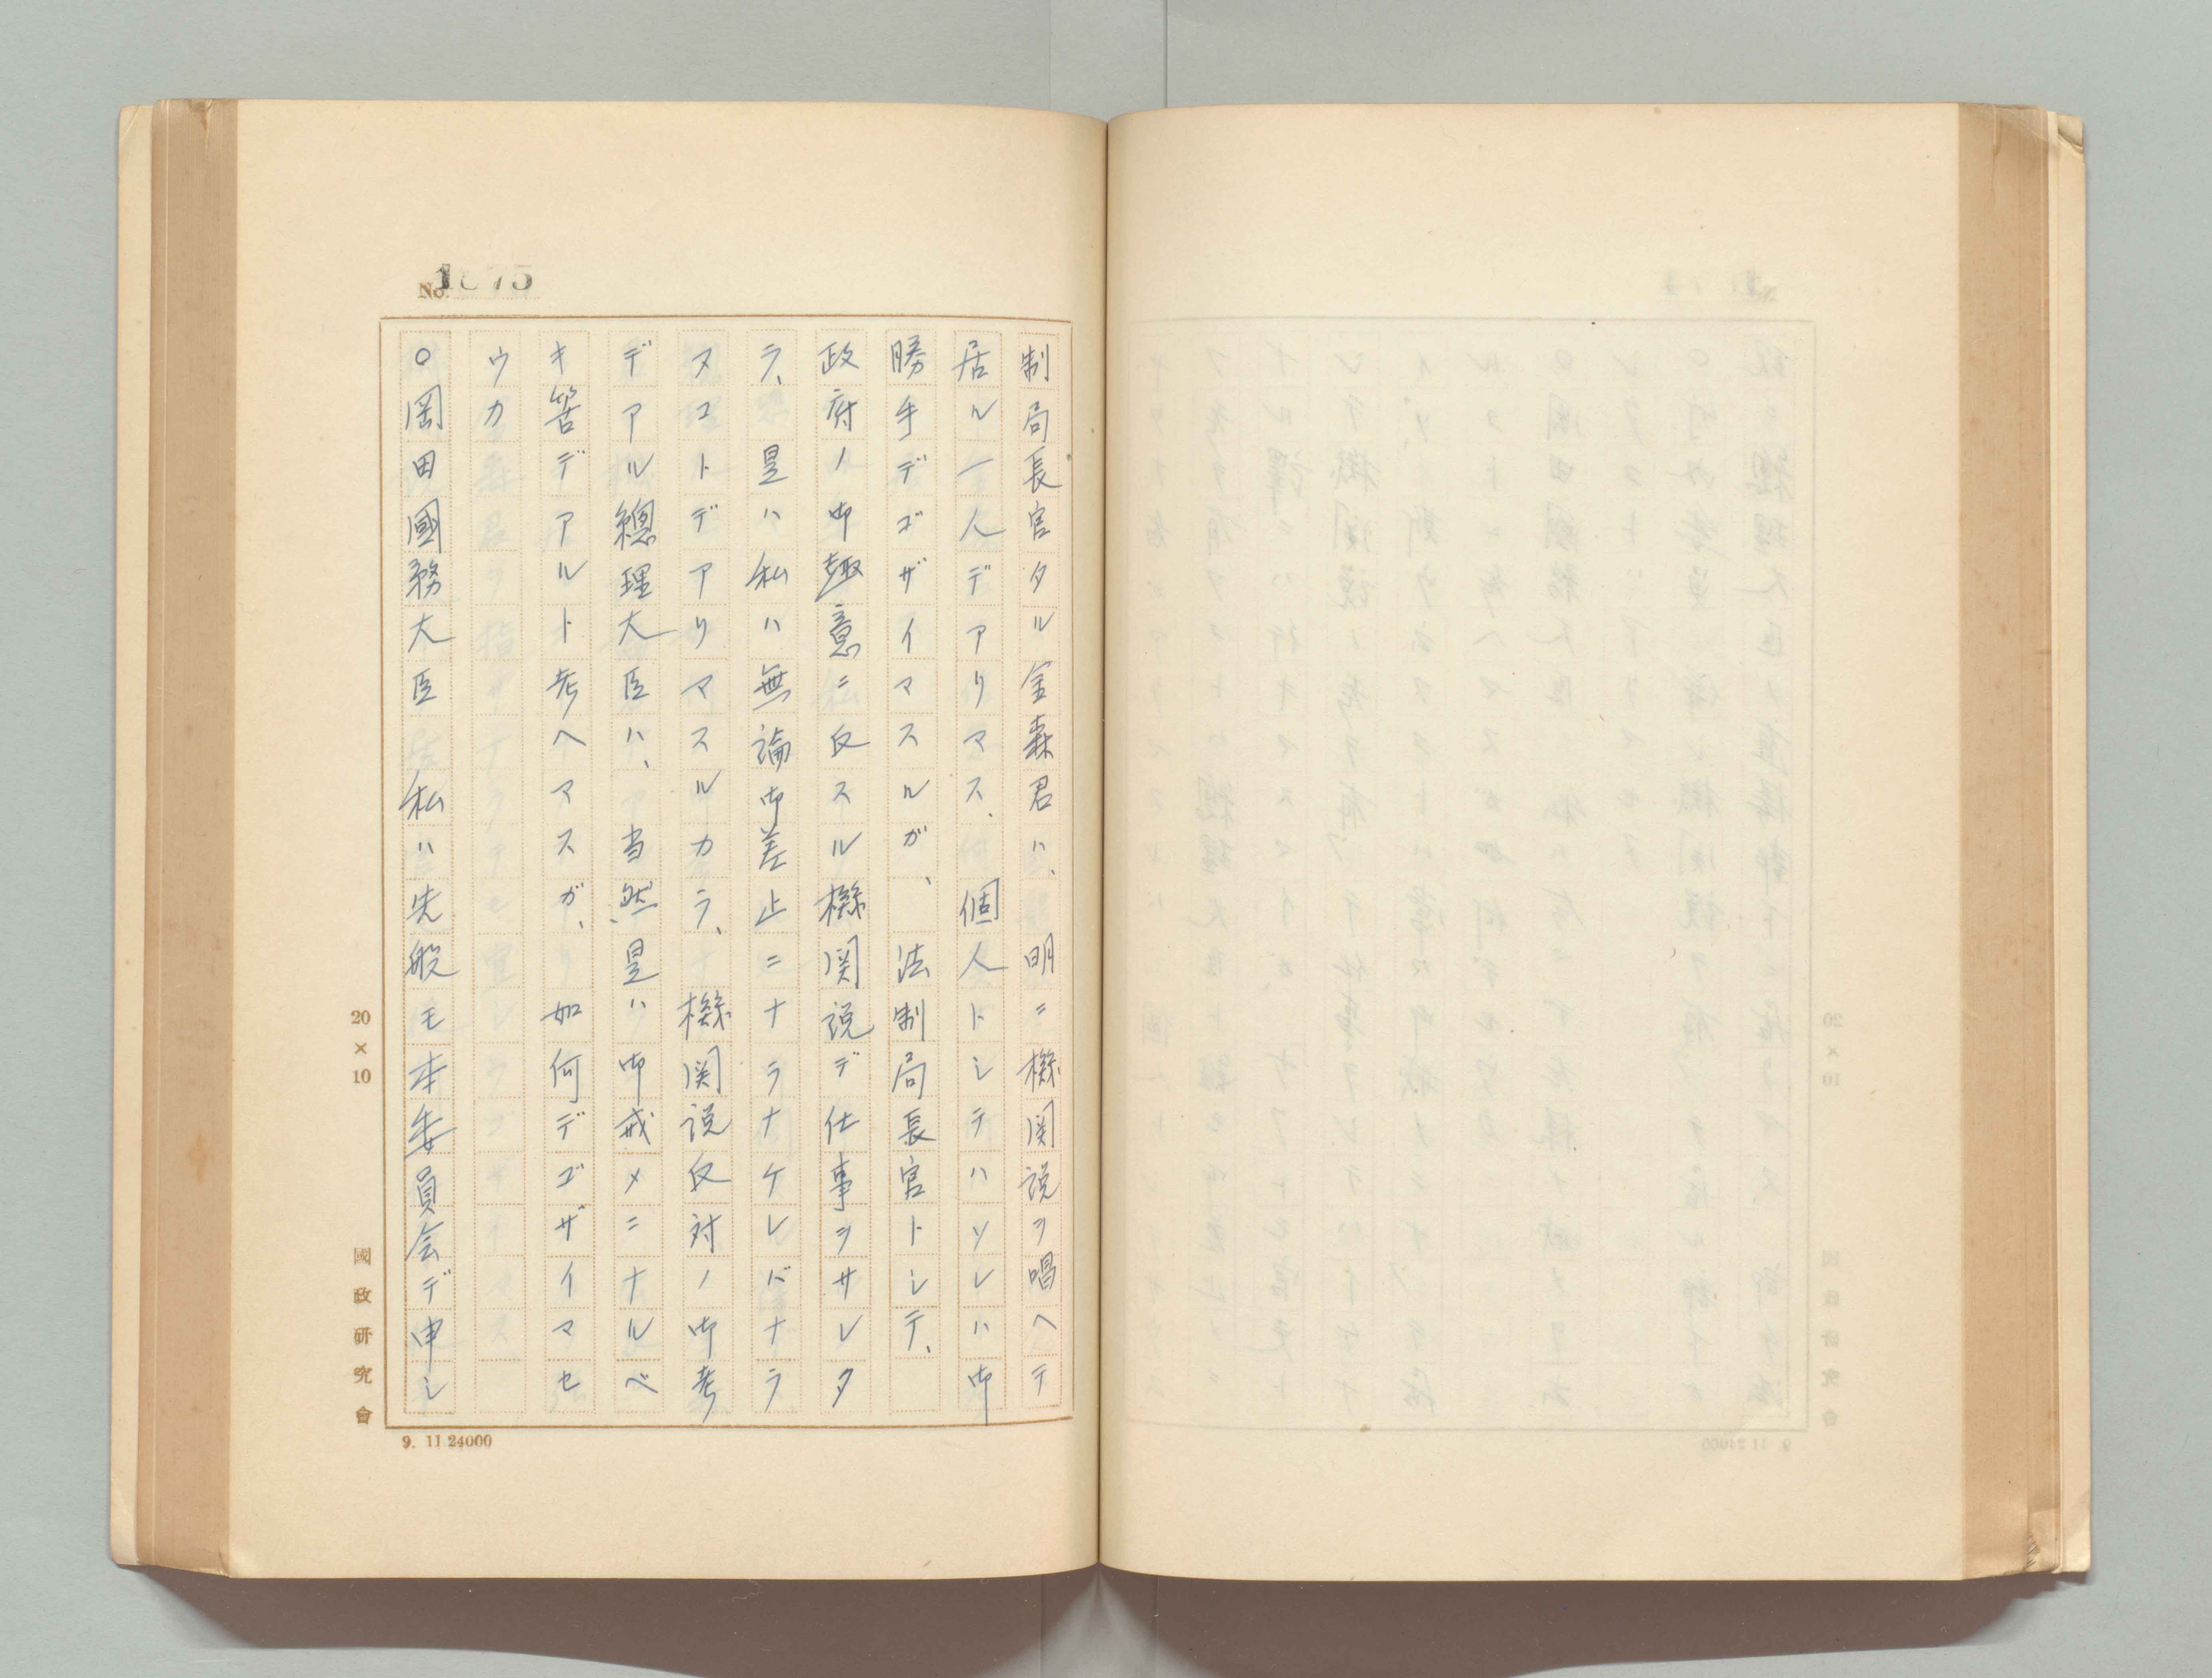 No. 1075
制局長官タル金森君ハ、明ニ機関説ヲ唱ヘテ
居ル一人デアリマス、個人トシテハソレハ御
勝手デゴザイマスルガ、法制局長官トシテ、
政府ノ御趣意ニ反スル機関説デ仕事ヲサレタ
ラ、是ハ私ハ無論御差止ニナラナケレバナラ
ヌコトデアリマスルカラ、機関説反対ノ御考
デアル總理大臣ハ、当然是ハ御戒メニナルベ
キ筈デアルト考ヘマスガ、如何デゴザイマセ
ウカ
○岡田國務大臣 私ハ先般モ本委員会デ申シ
20×10
國政研究會
9. 11 24000